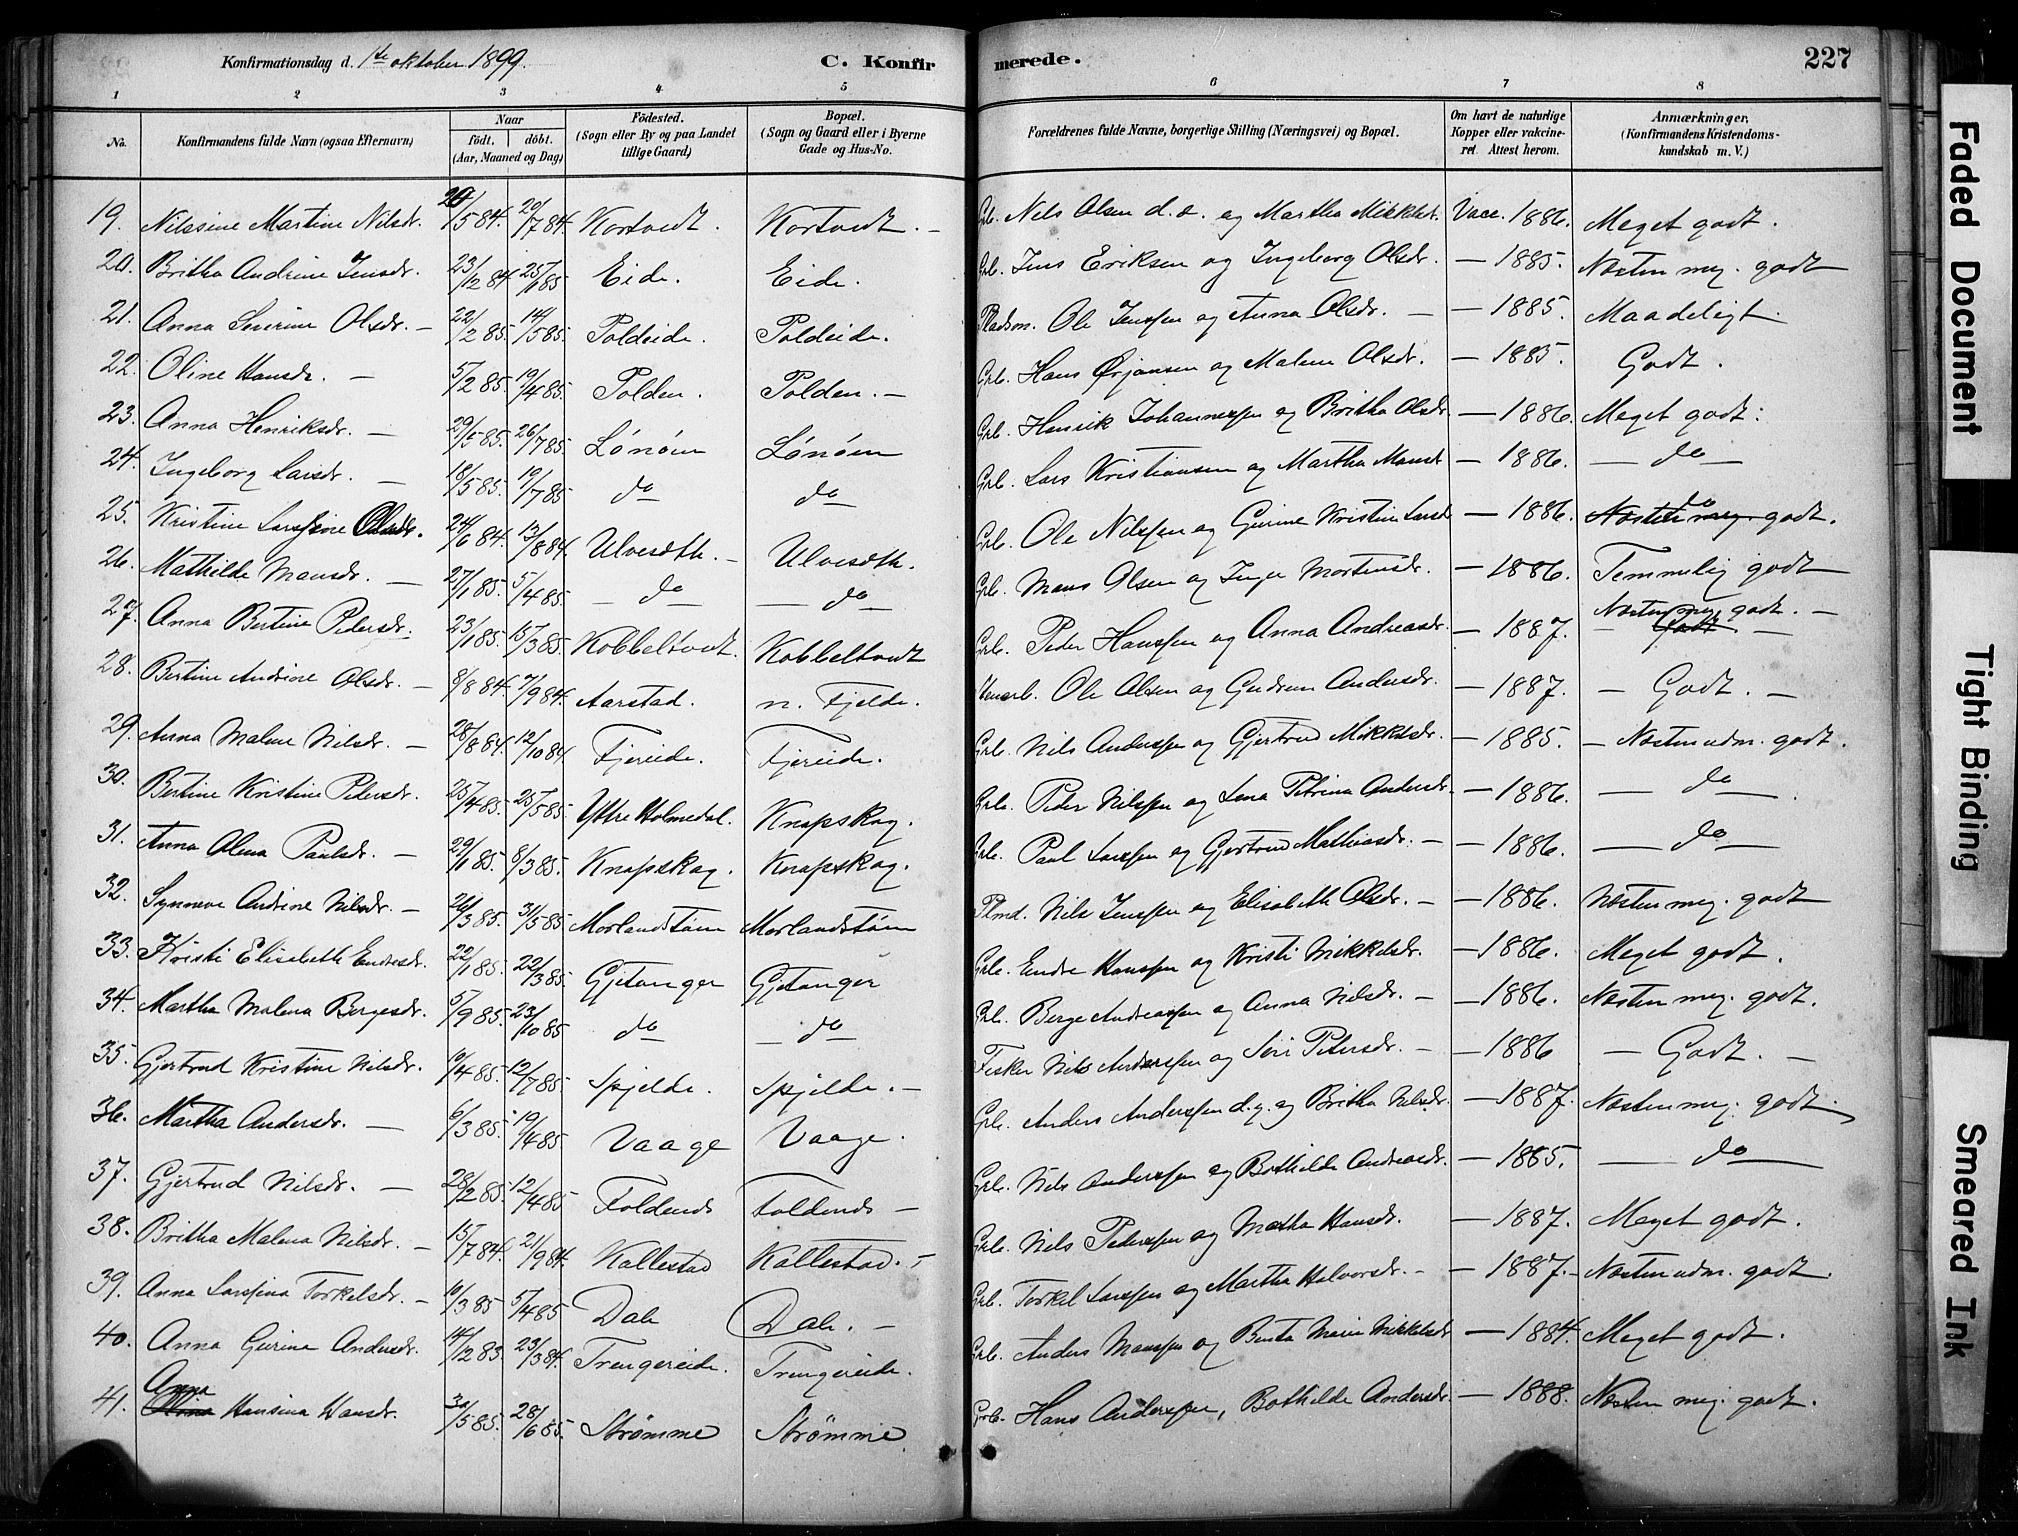 Konfirmationsdag d. 1ste oktober 1899. C. Konfirmerede. 227
1 2 3 4 5 6 7 8
No. Konfirmandens fulde Navn (ogsaa Efternavn) Naar født, døbt. (Aar, Maaned og Dag) Fødested. (Sogn eller By og paa Landet tillige Gaard) Bopæl. (Sogn og Gaard eller i Byerne Gade og Hus-No. Forældrenes fulde Navne, borgerlige Stilling (Næringsvei) og Bopæl. Om havt de naturlige Kopper eller vakcineret. Attest herom. Anmærkninger, (Konfirmandens Kristendomskundskab m. V.)
19. Nilssine Martine Nilsdr. /5 84. 20/7 84. Kortvedt. Kortvedt. – Grb. Nels Olsen d. e. og Martha Mikkelsd. Vacc. 1886. Meget godt.
20. Britha Andrine Jensdr. 23/12 84 25/1 85 Eide. Eide. Grb. Jens Eriksen og Ingeborg Olsdr. – 1885. Næsten meg. godt
21. Anna Severine Olsdr. – 22/2 85. 14/5 85. Poldeide. Poldeide. Pladsm. Ole Jenssen og Anna Olsdr. – – 1885. Maadeligt.
22. Oline Hansdr. – 5/2 85. 19/4 85. Polden. Polden. – Grb. Hans Ørjansen og Malene Olsdr. – 1885. Godt.
23. Anna Henriksdr. – 29/5 85. 26/7 85. Lønøen Lønøen Grb. Henrik Johannessen og Britha Olsdr – 1886. Meget godt.
24. Ingeborg Larsdr. – 18/5 85. 19/7 85 do do Grb. Lars Kristiansen og Martha Mansd – 1886. – do –
25. Kristine Larssine Olsdr. 24/6 84. 13/8 84. Ulvesæth. – Ulvesæth. Grb. Ole Nilssen og Gurine Kristine Larsd – 1886. Næsten meg. do godt.
26. Mathilde Mansdr. – 27/1 85. 5/4 85. – do – – do – Grb. Mans Olsen og Inger Mortensdr. – 1886. Temmelig godt
27. Anna Bertine Pedersdr. 23/1 85. 15/3 85. Kobbeltvedt. Kobbeltvedt Grb. Peder Hanssen og Anna Andreasdr. – 1887. Næsten meg. godt. – – Godt. –
28. Bertine Andrine Olsdr. – 8/8 84. 7/9 84. Aarstad. n. Fjelde. Ole Olsen og Gudrun Andersdr. – 1887. – Godt. –
29. Anna Malene Nilsdr. – 28/8 84. 12/10 84. Fjereide. Fjereide. Grb. Nils Anderssen og Gjertrud Mikkelsdr. – 1885. – Næsten udm. godt.
30. Bertine Kristine Pedersdr. 25/4 85. 25/5 85. Yttre Holmedal. Knapskog. Grb. Peder Nilssen og Lena Petrina Andersdr. – 1886. – do –
31. Anna Olena Paulsdr. – 29/1 85. 8/3 85. Knapskog. Knapskog. Grb. Paul Larssen og Gjertrud Mathiasdr. – – 1886. – do –
32. Synneve Andrine Nilsdr. – 26/3 85. 31/5 85. Morlandstøen Morlandstøen Plmd. Nils Jenssen og Elisabeth Olsdr. – – 1886. Næsten meg. godt
33. Kristi Elisabeth Endresdr. 22/1 85. 22/3 85. Gjetanger Gjetanger Grb. Endre Hanssen og Kristi Mikkelsdr. – 1886. Meget godt.
34. Martha Malena Bergesdr. 5/9 85. 23/10 85 do – do – Grb. Berge Andreassen og Anna Nilsdr. – – 1886. Næsten meg. godt.
35. Gjertrud Kristine Nilsdr. /4 85. 12/7 85. Spjelde. Spjelde. – Fisker Nils Anderssen og Siri Petersdr. – – 1886 – Godt. –
36. Martha Andersdr. – 6/3 85. 19/4 85 Vaage Vaage. Grb. Anders Anderssen d. y. og Britha Nilsdr. – 1887. Næsten meg. godt.
37. Gjertrud Nilsdr. – 28/2 85. 12/4 85 Foldends Foldends – Grb. Nils Anderssen og Bothilde Andreasdr. – 1885. – do –
38. Britha Malena Nilsdr. – 15/7 84. 21/9 84. Kallestad Kallestad. – Grb. Nils Pederssen og Martha Hansdr. – 1887. Meget godt.
39. Anna Larssina Torkelsdr. – /3 85 5/4 85 Dale Dale. – Grb. Torkel Larssen og Martha Halvorsdr. – – 1887. – Næsten udm. godt.
40. Anna Gurina Andersdr. 14/12 83. 23/3 84. Trengereide. Trengereide. Grb. Anders Manssen og Berta Marie Mikkelsdr – 1884. Meget godt.
41. Anna Olina Hansina Hansdr. 30/5 85. 28/6 85. Strømme Strømme Grb. Hans Anderssen, Bothilde Andersdr – 1888. Næsten meg. godt.
Faded Document
Tight Binding
Smeared Ink